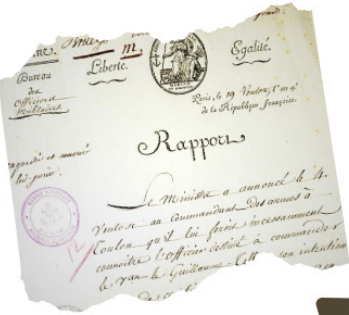 Liberté.
Egalité.
Bureau
des
Officiers
Militaires
Paris, le 19 Ventose, l'an 4e
de la République française.
Rapport
Le Ministre a annoncé le 4.
Ventose au Commandant des armes à
Toulon qu'il lui feroit incessamment
connoître l'officier destiné à commander
le vau le Guillaume Tell son intention